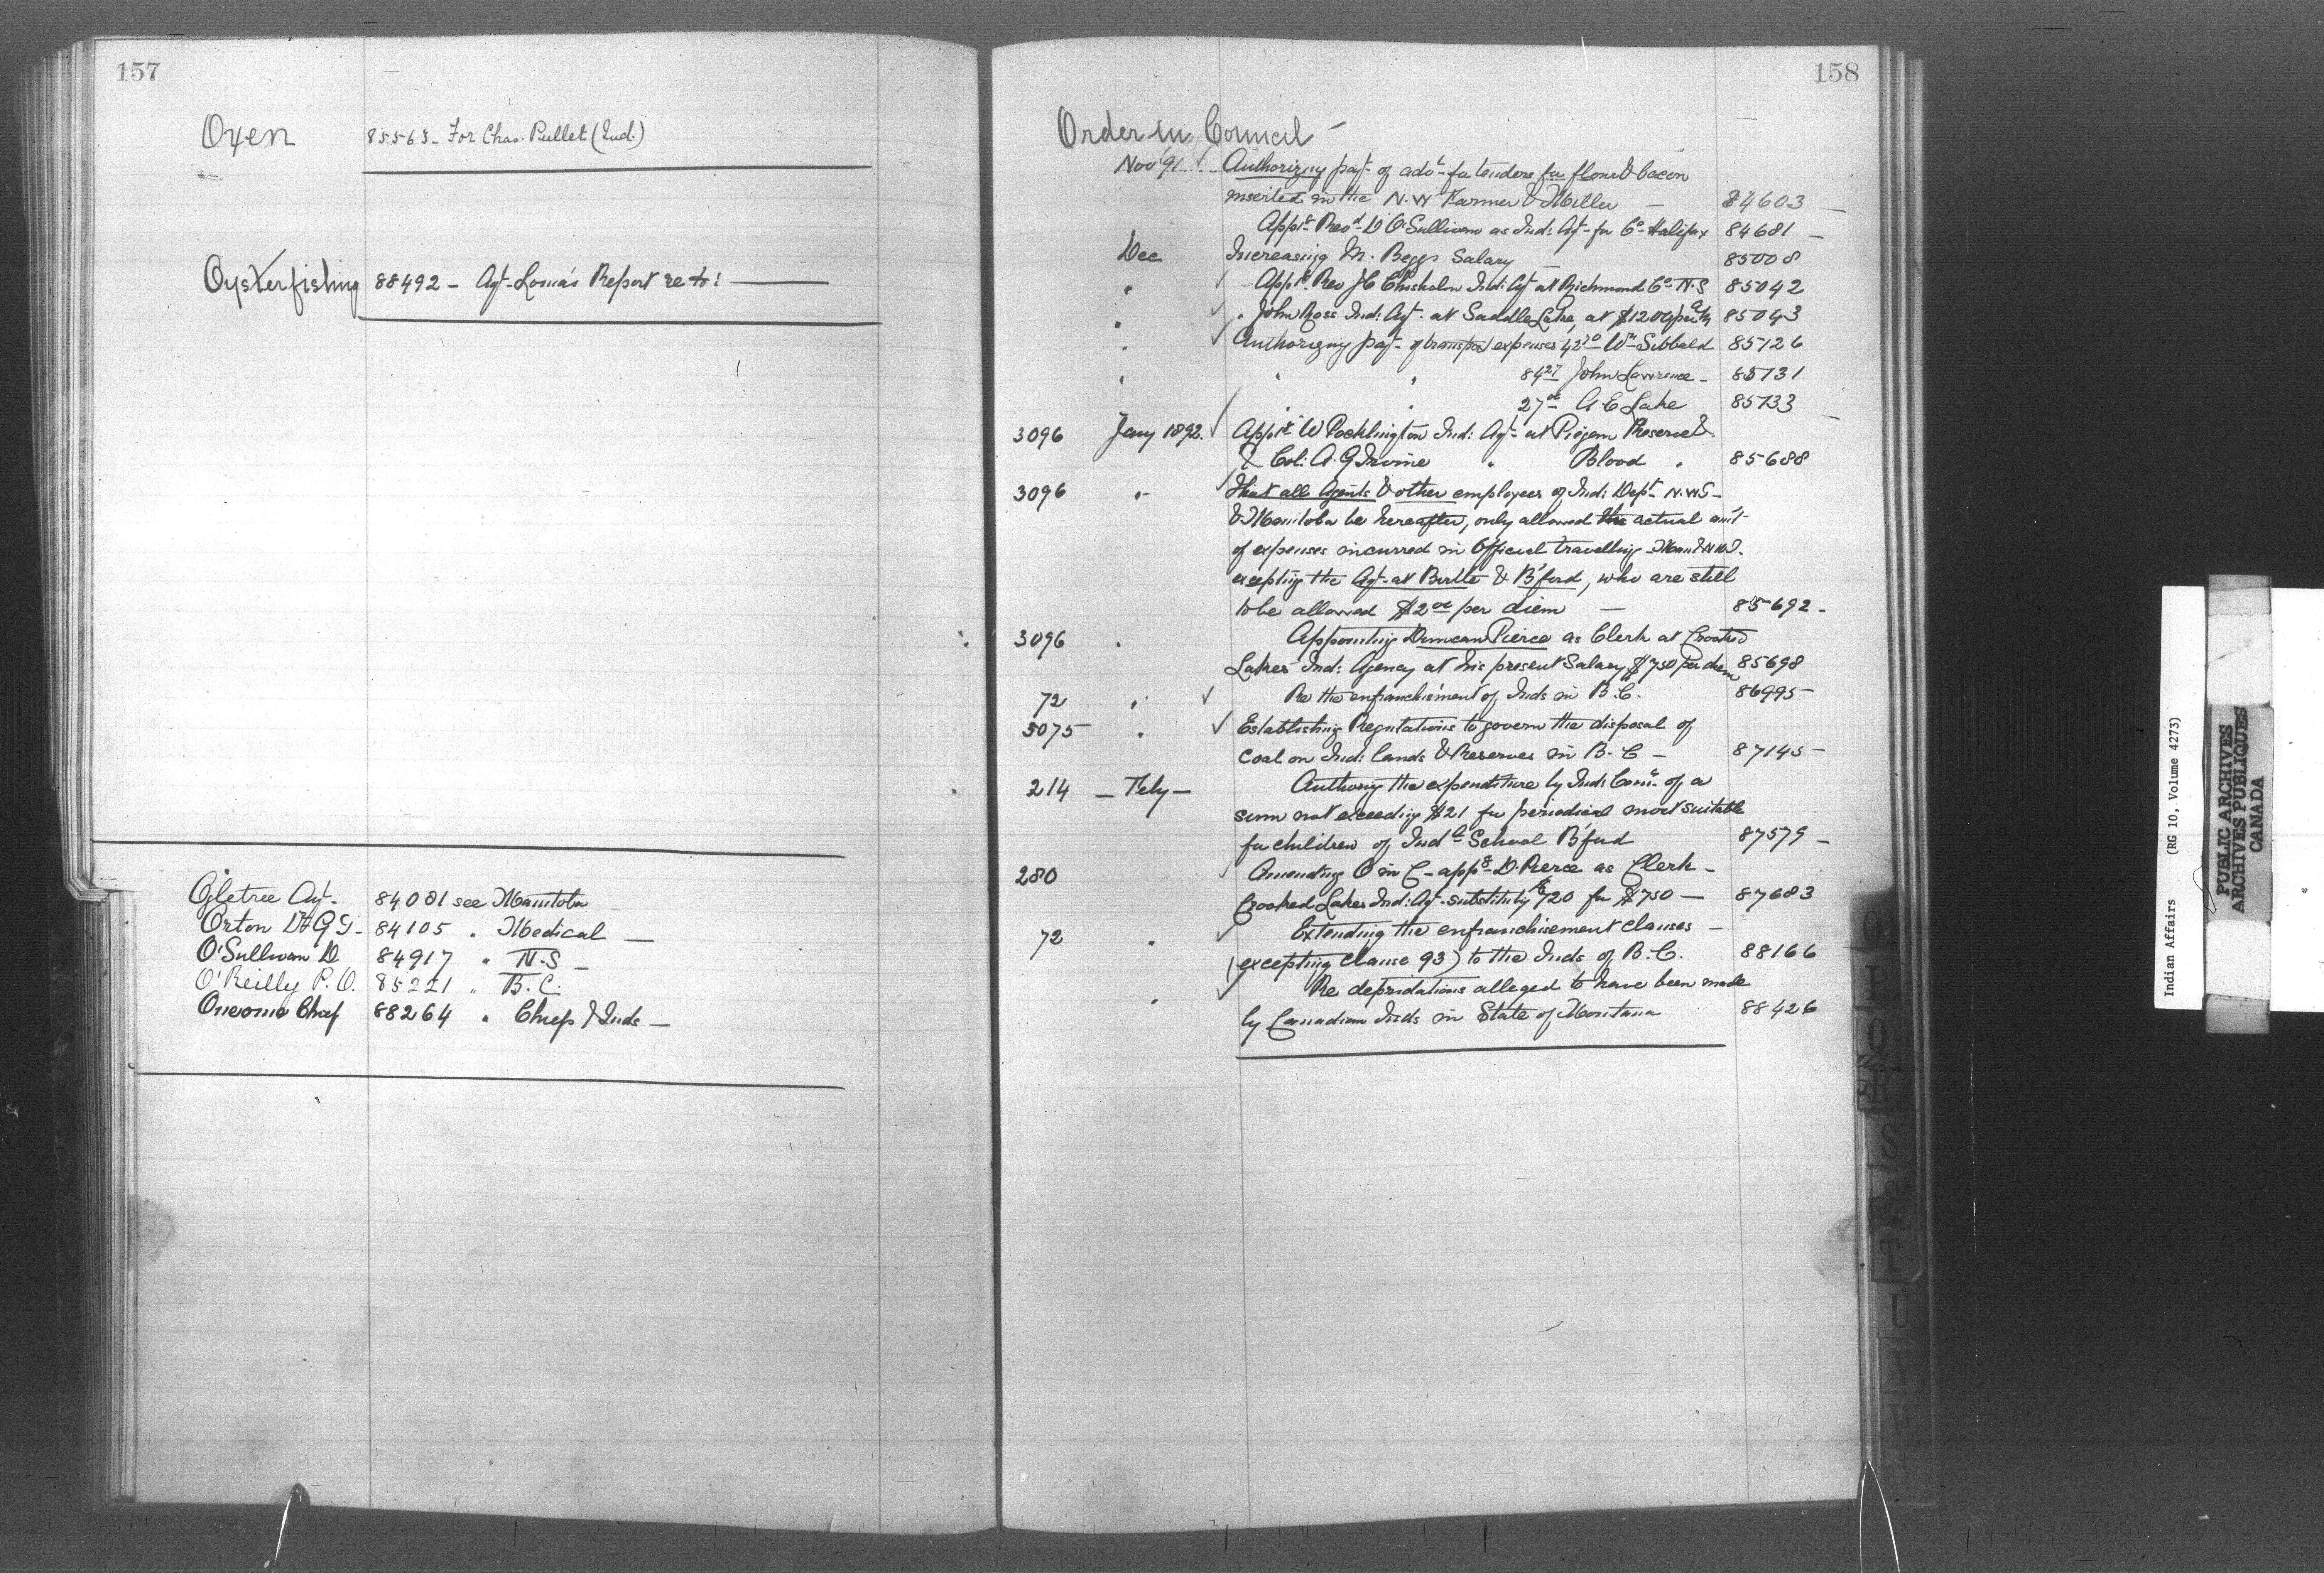 157
Oxen 85563 - For Chas. Pullet (Ind.)
Oysterfishing 88492 - Agt - Loma's Report re to:
Ogletree Agt. 84081 see Manitoba
Orton Dr G T - 84105 " Medical
O'Sullivan D 84917 " N.S
O'Reilly P. O. 85221 " B.C.
Chief 88264 " Chiefs & Inds
158
Order in Council
Nov '91 Authorizing payt of advt for tenders for flour & bacon
inserted in the N.W Farmer & Miller 84603
Appt. Revd D O'Sullivan as Ind: Agt - for Co Halifax 84681
Dec Increasing M. Beggs Salary 85008
" Appt. Rev J C Chisholm Ind: Agt at Richmond Co N.S 85042
" " John Ross Ind: Agt. at Saddle Lake, at $1200 per 85043
" Authorizing payt - of expenses 42 20 Wm Sibbald 85126
" " " 84 27 John Lawrence 85131
" " 27 00 A E Lake 85133
3096 Jany 1892. Appt W Pocklington Ind: Agt - at Piegan Reserve &
& Col: A. G Irvine " Blood " 85688
3096 " That all Agents & other employees of Ind: Dept N.W.T
& Manitoba be hereafter, only allowed the actual amt
of expenses incurred in Official travelling Man & NWT.
excepting the Agt - at Birtle & B'ford, who are still
to be allowed $2 00 per diem 85692
3096 " Appointing Duncan Pierce as Clerk at Crooked
Lakes Ind: Agency at his present Salary $750 per diem 85698
72 " Re the enfranchisement of Inds in B.C. 86995
5075 " Establishing Regulations to govern the disposal of
Coal on Ind: lands & Reserves in B-C 87145
214 Feby Authorizg the expenditure by Ind: Comr. of a
sum not exceeding $21 for periodical most suitable
for children of Indl School B'ford 87579
280 Amending O in C - appg D. Pierce as Clerk -
Crooked Lakes Ind: Agt - substitutg $720 for $750 87683
72 " Extending the enfranchisement clauses
(excepting clause 93) to the Inds of B.C. 88166
" Re depridations alleged to have been made
by Canadian Inds in State of Montana 88426
O
P
Q
R
S
T
U
V
W
Indian Affairs (RG 10, Volume 4273)
PUBLIC ARCHIVES
ARCHIVES PUBLIQUES
CANADA